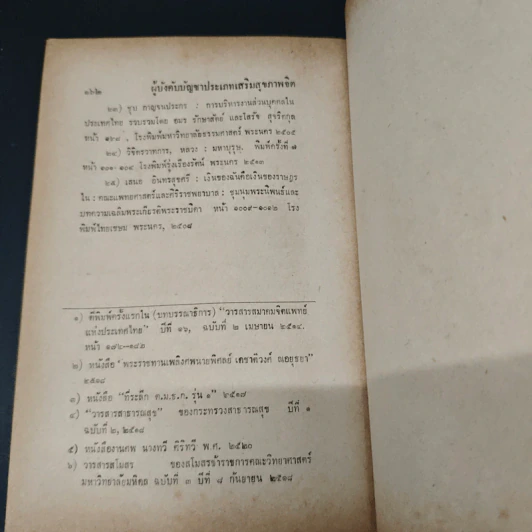 ๑๖๒ ผู้บังคับบัญชาประเภทเสริมสุขภาพจิต
๒๓) ชุบ กาญจนประกร : การบริหารงานส่วนบุคคลใน
ประเทศไทย รวบรวมโดย อมร รักษาสัตย์ และโสรัจ สุจริตกุล
หน้า โรงพิมพ์มหาวิทยาลัยธรรมศาสตร์ พระนคร ๒๕๐๕
๒๔) วิจิตรวาทการ, หลวง : มหาบุรุษ. พิมพ์ครั้งที่ ๗
หน้า ๑๐๓-๑๐๔ โรงพิมพ์รุ่งเรืองรัตน์ พระนคร ๒๕๑๓
๒๕) เสนอ อินทรสุขศรี : เงินของฉันคือเงินของราษฎร
ใน : คณะแพทยศาสตร์และศิริราชพยาบาล : ชุมนุมพระนิพนธ์และ
บทความเฉลิมพระเกียรติพระราชบิดา หน้า ๑๐๐๙-๑๐๑๒ โรง
พิมพ์ไทยเขษม พระนคร, ๒๕๐๘
๑) ตีพิมพ์ครั้งแรกใน (บทบรรณาธิการ) "วารสารสมาคมจิตแพทย์
แห่งประเทศไทย" ปีที่ ๑๖, ฉบับที่ ๒ เมษายน ๒๕๑๔.
หน้า ๑๗๔-๑๘๓
๒) หนังสือ "พระราชทานเพลิงศพนายพิศลย์ เดชาติวงศ์ ณอยุธยา"
๒๕๑๘
๓) หนังสือ "ที่ระลึก ศ.ม.ธ.ก. รุ่น ๑" ๒๕๑๗
๔) "วารสารสาธารณสุข" ของกระทรวงสาธารณสุข ปีที่ ๑
ฉบับที่ ๒, ๒๕๑๘
๕) หนังสืองานศพ นางทวี ศิริทวี พ.ศ. ๒๕๒๐
๖) วารสารสโมสร ของสโมสรข้าราชการคณะวิทยาศาสตร์
มหาวิทยาลัยมหิดล ฉบับที่ ๓ ปีที่ ๘ กันยายน ๒๕๑๘